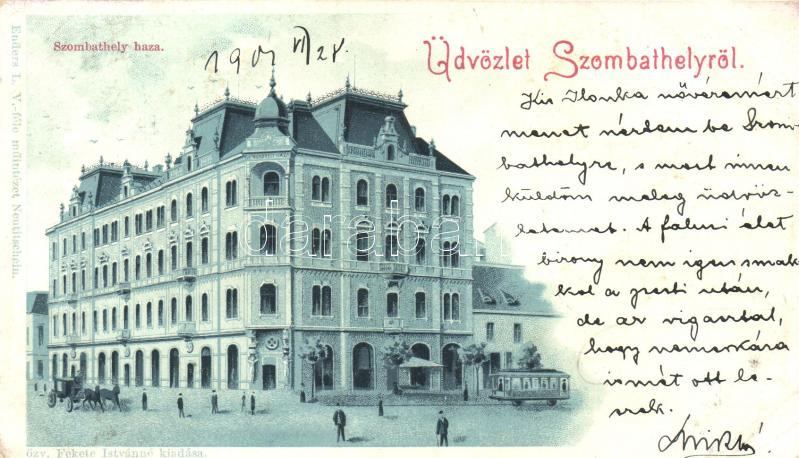 Szombathely haza.
190 VI/28.
Üdvözlet Szombathelyről.
Kis Ilonka nővéremért
menet rándtam be Szom-
bathelyre, s most innen
küldöm meleg üdvöz-
letemet. A falusi élet
bizony nem igen smak-
kol a pesti után,
de az vigasztal,
hogy nemsokára
ismét ott le-
szek.
Miklós
darabanth
Enders L. V.-féle műintézet Neutitschein.
özv. Fekete Istvánné kiadása.